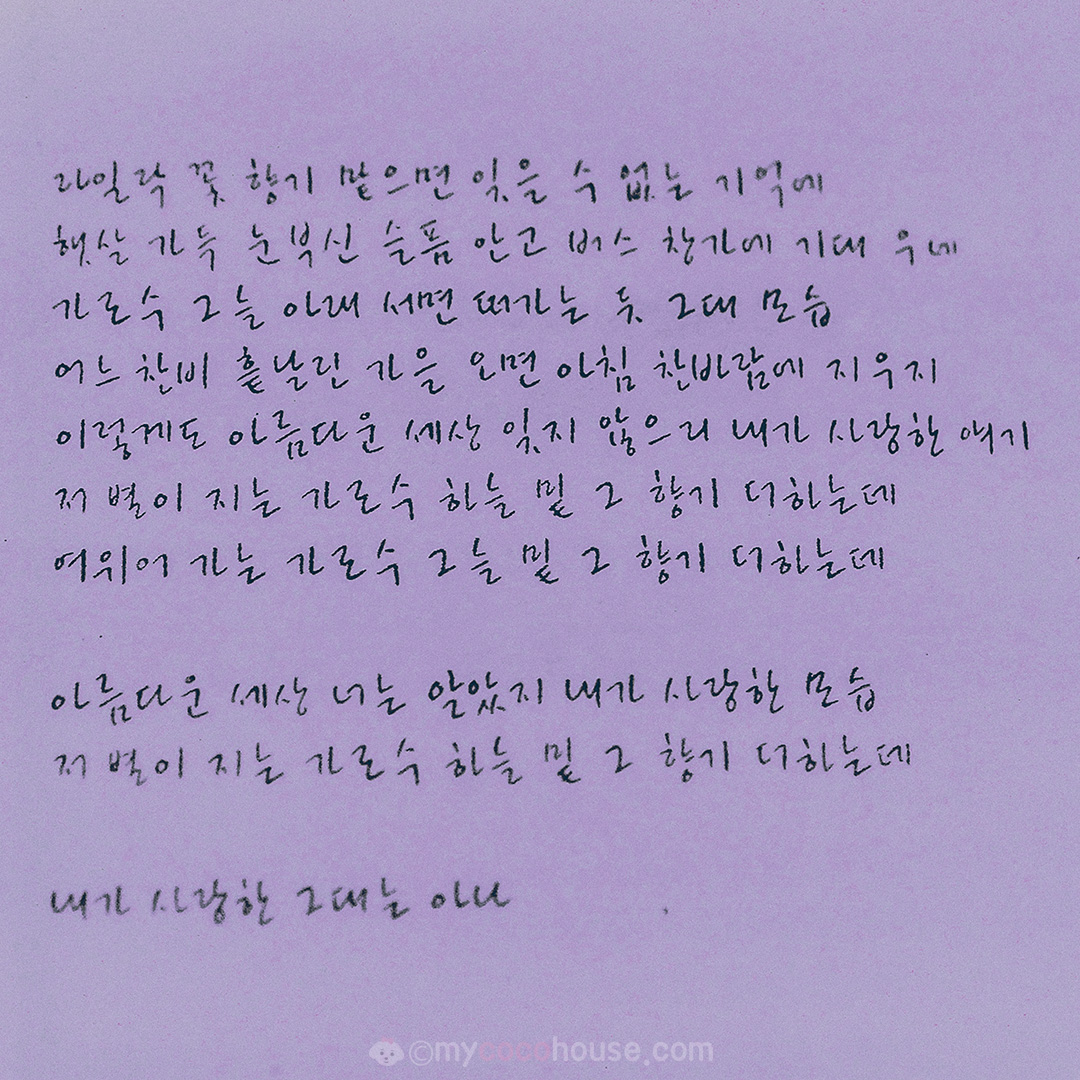 라일락 꽃 향기 맡으면 잊을 수 없는 기억에
햇살 가득 눈부신 슬픔 안고 버스 창가에 기대 우네
가로수 그늘 아래 서면 떠가는 듯 그대 모습
어느 찬비 흩날린 가을 오면 아침 찬바람에 지우지
이렇게도 아름다운 세상 잊지 않으리 내가 사랑한 얘기
저 별이 지는 가로수 하늘 밑 그 향기 더하는데
여위어 가는 가로수 그늘 밑 그 향기 더하는데
아름다운 세상 너는 알았지 내가 사랑한 모습
저 별이 지는 가로수 하늘 밑 그 향기 더하는데
내가 사랑한 그대는 아나
©mycocohouse.com